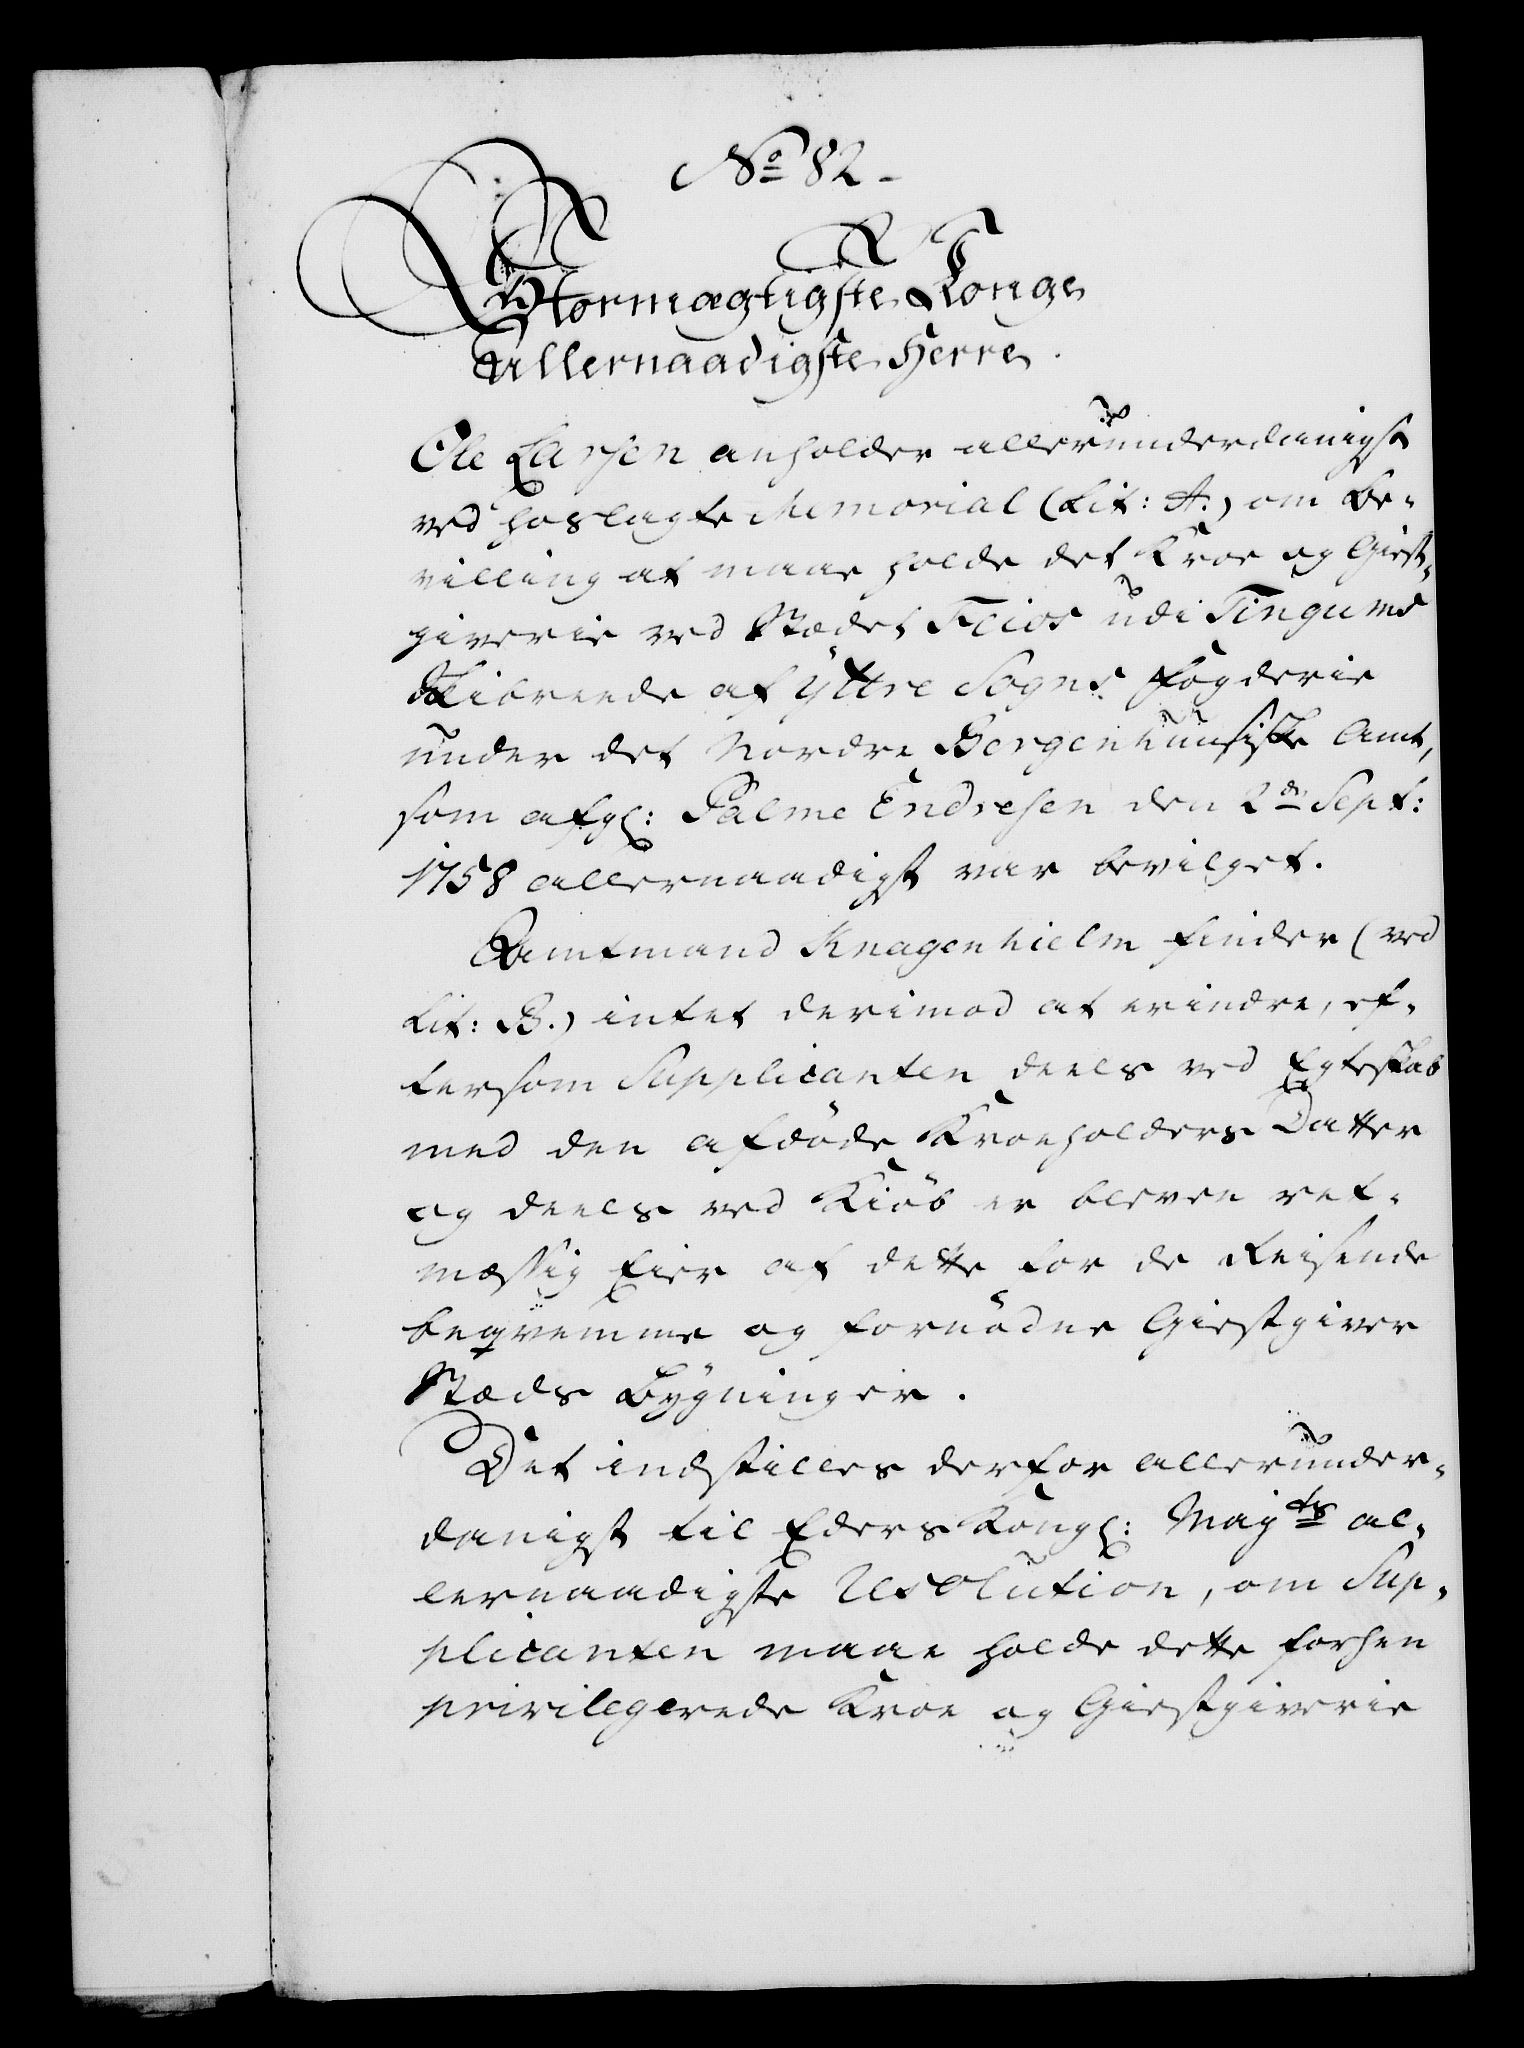 No 82.
Stormægtigste Konge
Allernaadigste Herre.
Ole Larsen anholder allerunderdanigst
ved hoslagte Memorial (Lit: A.) om Be-
villing at maae holde det Kroe og Giest-
giverie ved Stædet Feios udi Tingums
Skibreede af Yttre Sogns Fogderie
under det Nordre Bergenhuusiske Amt,
som afgl: Palme Endresen den 2de Sept:
1758 allernaadigst var bevilget.
Amtmand Knagenhielm finder (ved
Lit: B.) intet derimod at erindre, ef-
tersom Supplicanten deels ved Egteskab
med den afdöde Kroeholders Datter
og deels ved Kiöb er bleven ret-
mæssig Eier af dette for de Reisende
beqvemme og fornödne Giestgiver
Stæds Bygninger.
Det indstilles derfor allerunder-
danigst til Eders Kongl: Mayts al-
lernaadigste Resolution, om Sup-
plicanten maae holde dette forhen
privilegerede Kroe og Giestgiverie